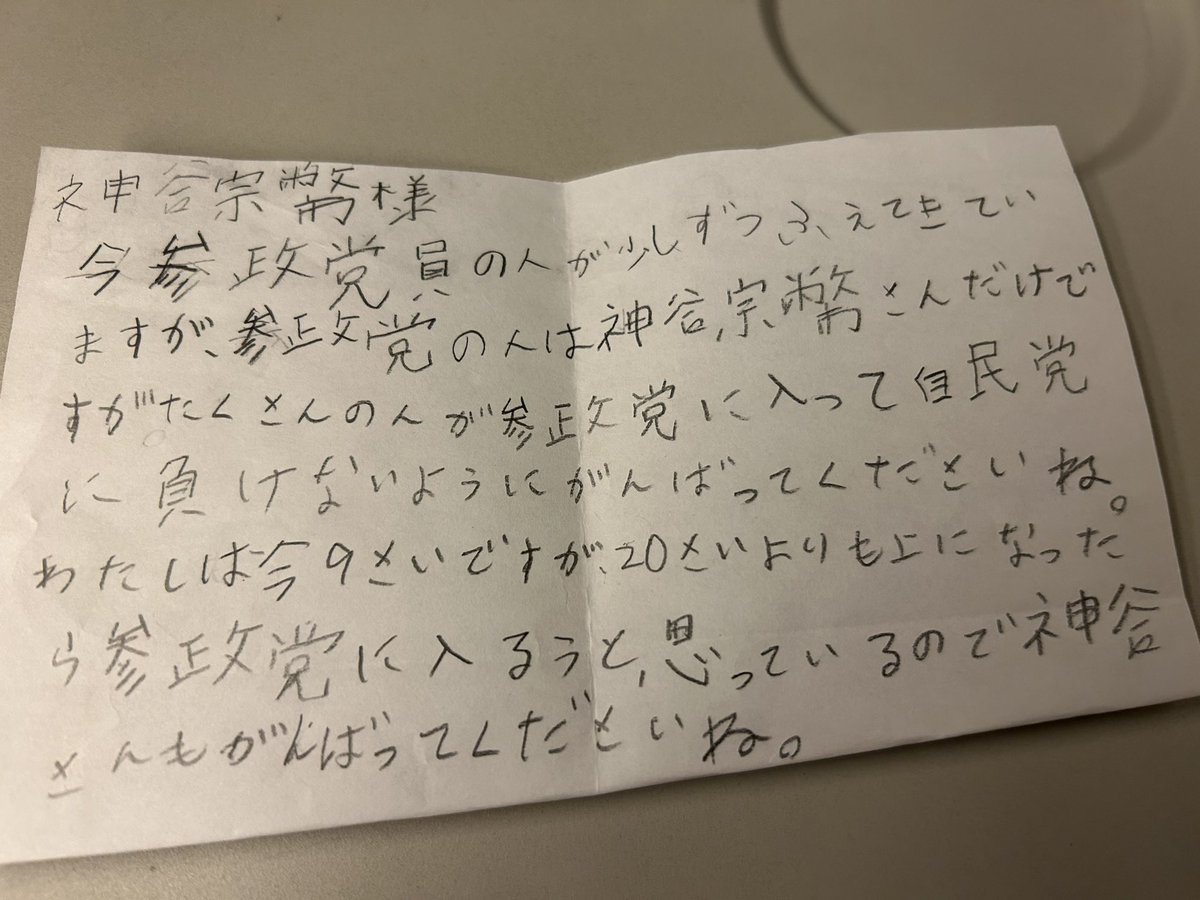 神谷宗幣様
今参政党員の人が少しずつふえてきてい
ますが、参政党の人は神谷宗幣さんだけで
すがたくさんの人が参政党に入って自民党
に負けないようにがんばってくださいね。
わたしは今9さいですが、20さいよりも上になった
ら参政党に入るうと、思っているので神谷
さんもがんばってくださいね。